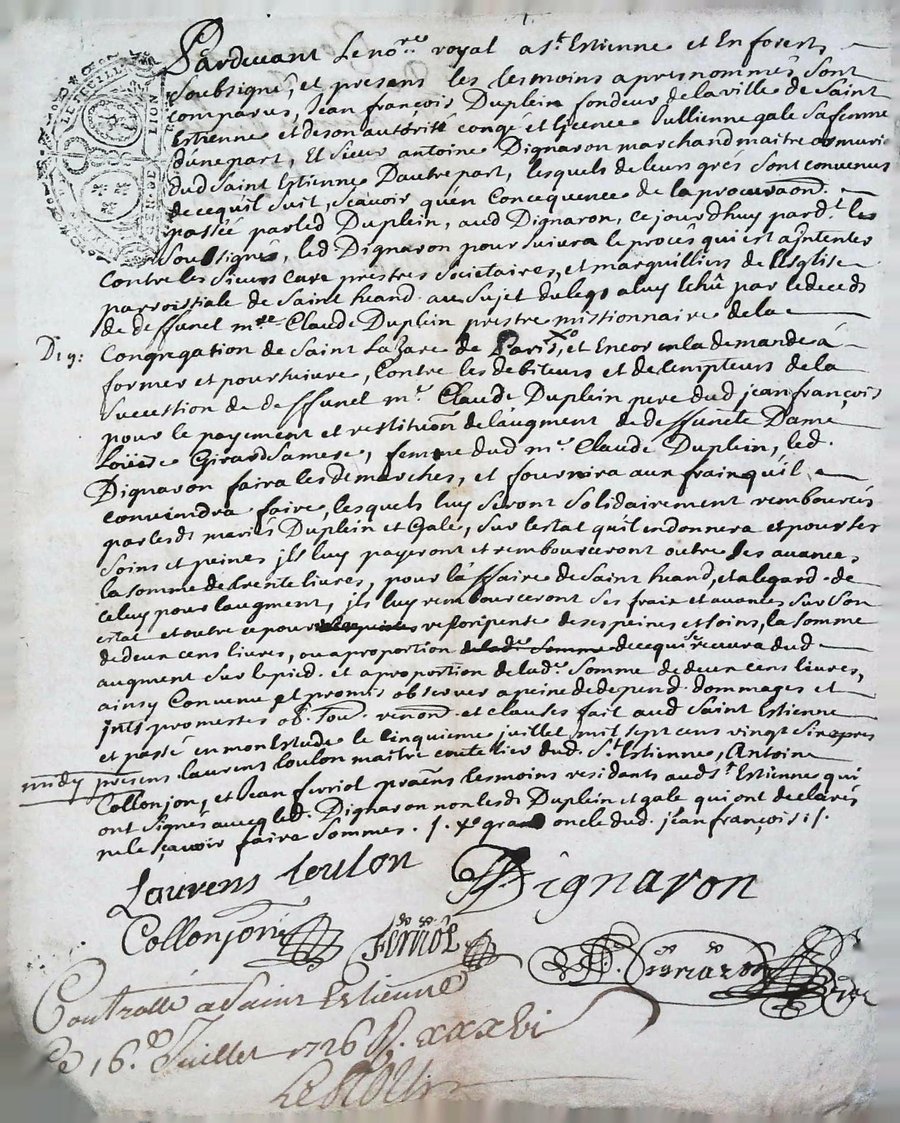 LE FEUILLE
LION
Pardevant Le no.re royal a s.t Estienne et En forests
soubsigné, et presens les tesmoins apres nommés, sont
comparus, jean françois Duplein fondeur de la ville de saint
Estienne et de son autorité congé et licence jullienne gale sa femme
dune part, Et sieur antoine Dignaron marchand maitre armurie
dud saint Estienne Dautre part, lesquels de leurs grés sont convenus
de ce quil suit, scavoir qu'en consequence de la procuraon.
passée par led Duplein, aud Dignaron, ce jourdhuy pard.t les
soubsignés, led Dignaron poursuivra le procés qui est a jntenter
contre les sieurs curé prestres societaires, et marguilliers de l'Esglise
parroissiale de saint heand. au sujet du legs a luy echû par le deceds
de deffunct m.re Claude Duplein prestre missionnaire de la
Dig: Congregation de saint Lazare de Paris, et Encor en la demande a
former et poursuivre, contre les debiteurs et detempteurs de la
succession de deffunct m.r Claude Duplein pere dud jean françois
pour le payement et restituon de laugment de deffuncte Dame
Girard sa mere, femme dud m.r Claude Duplein, led.
Dignaron faira les demarches, et fournira aux frais quil
conviendra faire, lesquels luy seront solidairement remboursés
par lesd mariés Duplein et Gale, sur lestat qu'il en donnera et pour ses
soins et peines jls luy payeront et rembourceront outre les avances
la somme de trente livres, pour laffaire de saint heand, et a legard de
celuy pour laugment, jls luy rembourceront ses frais et avances sur son
estat et outre ce pour reconpense de ses peines et soins, la somme
de deux cens livres, ou a proportion de lad.e somme de ce qui se recevra dud
augment sur le pied et a proportion de lad.e somme de deux cens livres,
ainsy Convenu et promis observer a peine de depend. dommages et
jnts promesses ob. sou. renon.d et clauses fait aud saint Estienne
et passé en mon Estude le cinquieme juillet mil sept cens vingt six apres
midy presens laurens toulon maitre coutelier dud. s.t Estienne, Antoine
Collonjon, et jean fevriol praens tesmoins residants aud s.t Estienne qui
ont signés avec led. Dignaron non lesd Duplein et gale qui ont declarés
ne le sçavoir faire sommes. /. x grand oncle dud. jean françois ./.
Laurens toulon Dignaron
Collonjon
Dignaron
Controllé a Saint Estienne
Ce 16.e Juillet 1726 R. xxxvi s